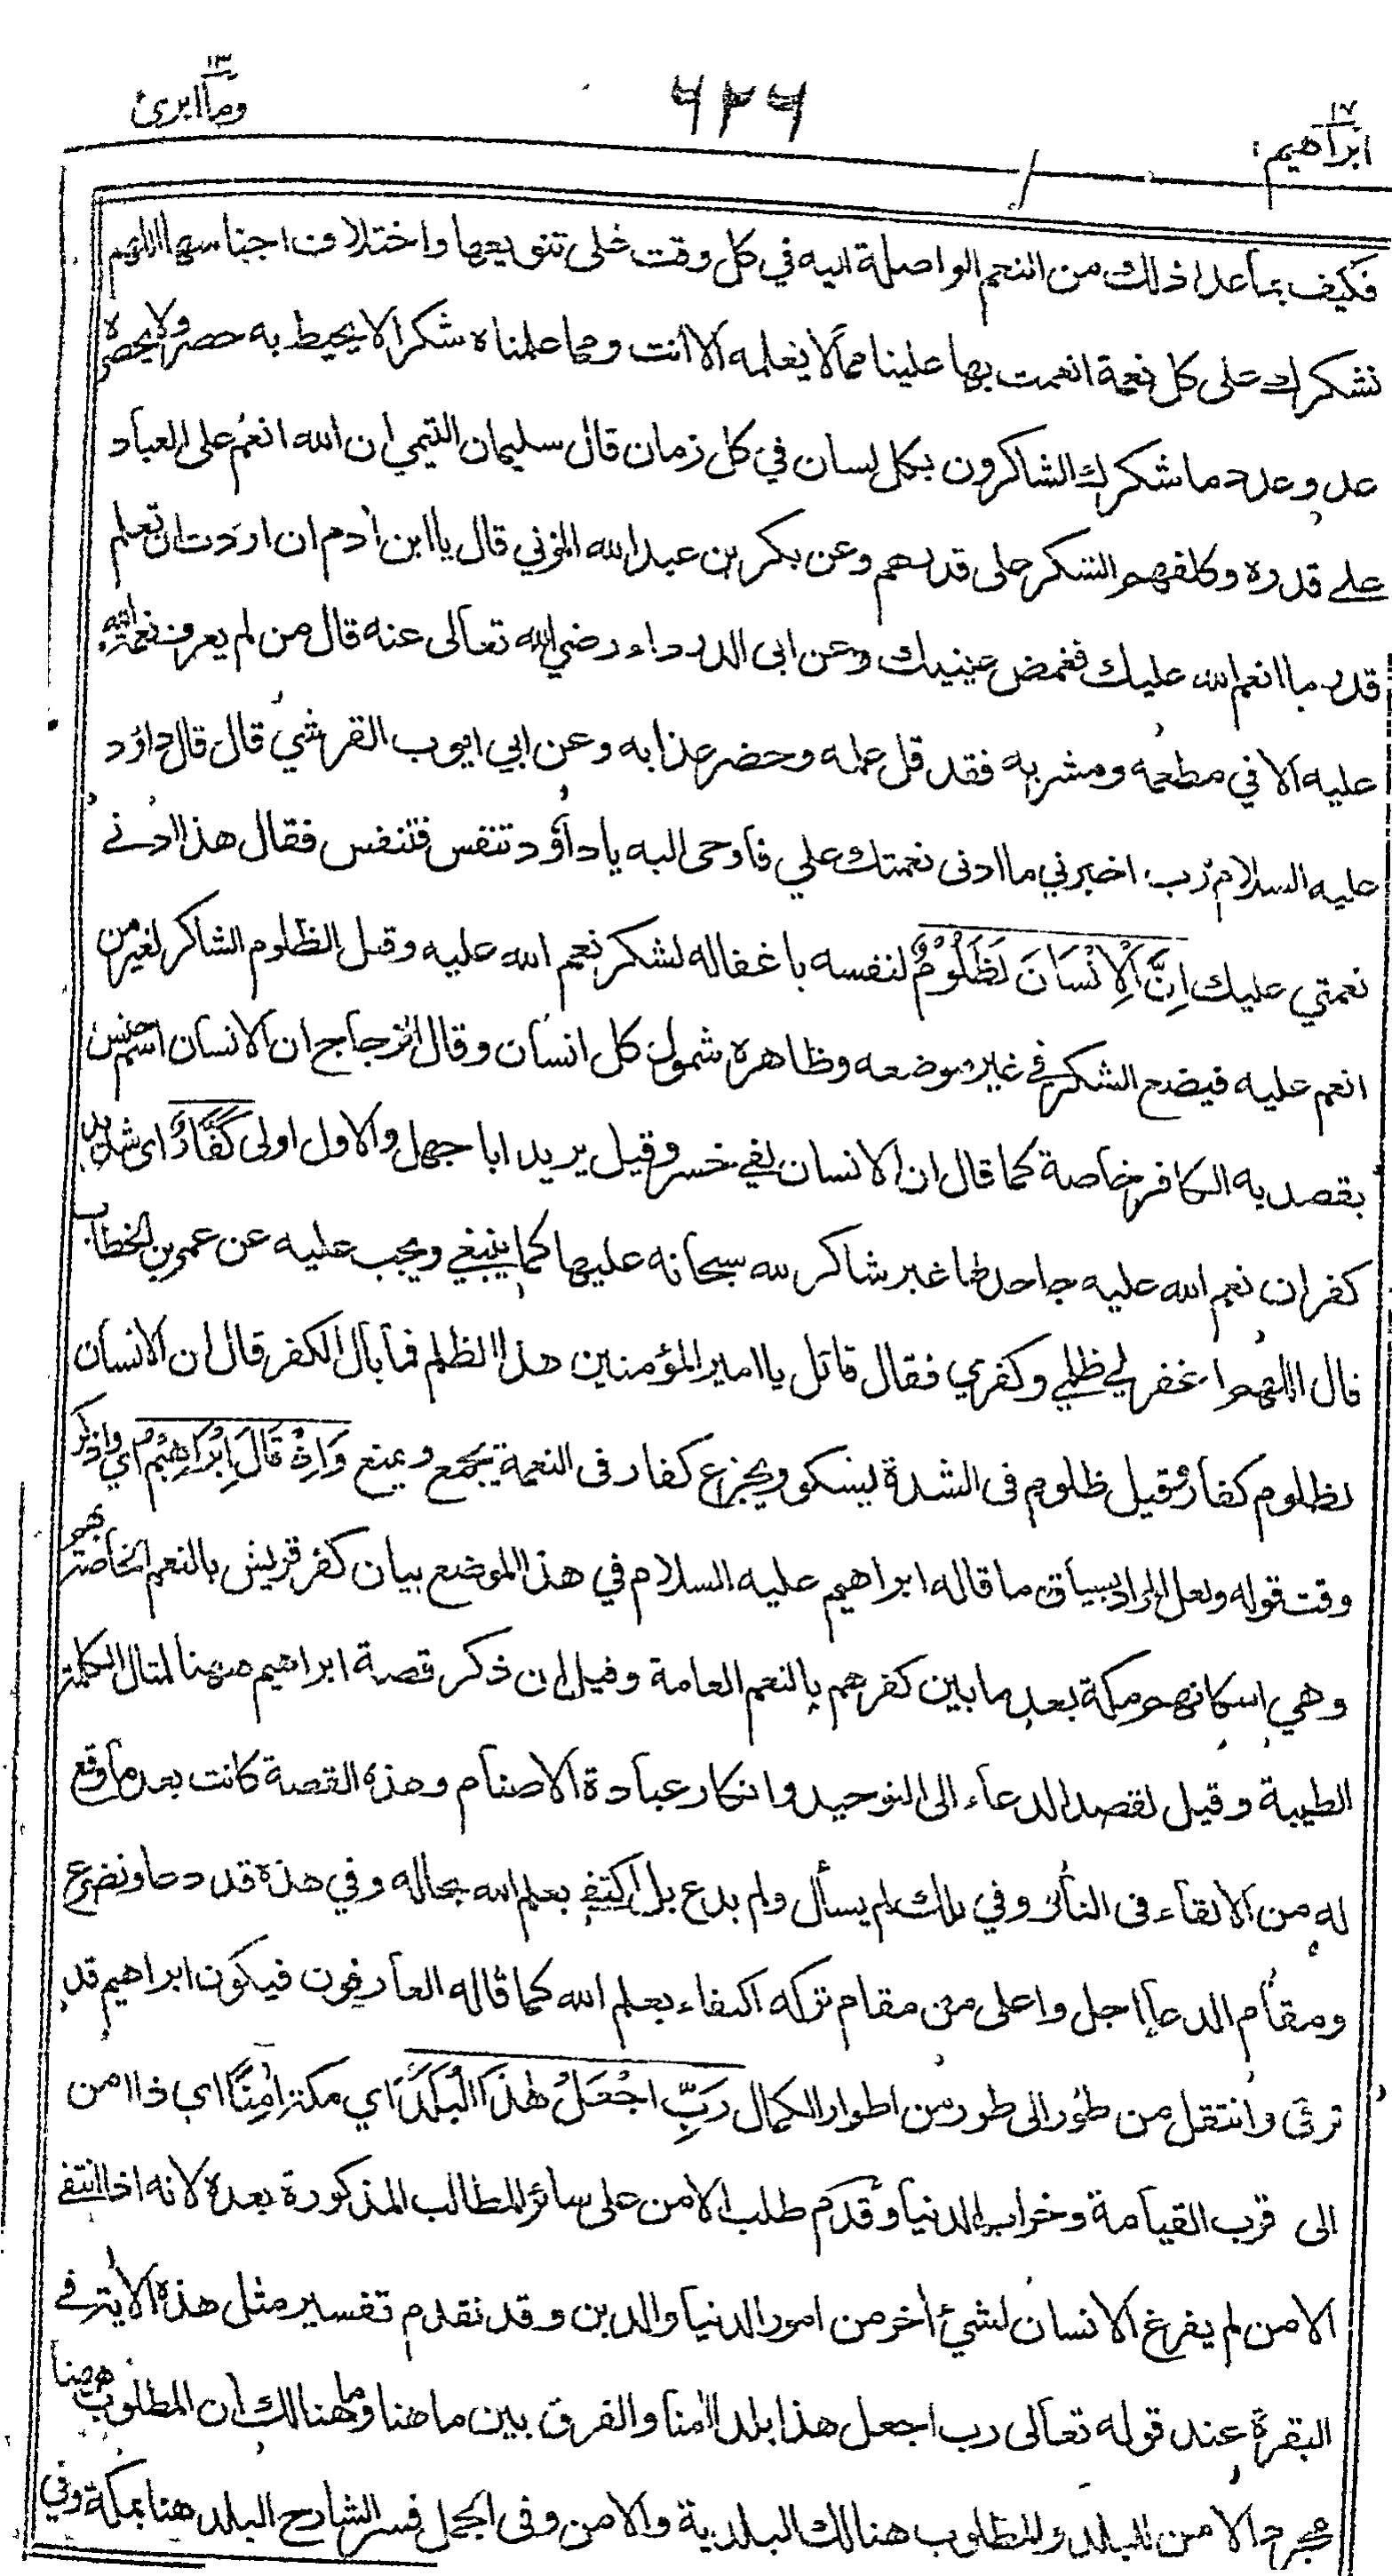 ابراهيم ١٧
٦٢٦
وما ابرئ ١٣
فكيف بما عدا ذلك من النعم الواصلة اليه في كل وقت على تنويعها واختلاف اجناسها اللهم
نشكرك على كل نعمة انعمت بها علينا مما لا يعلمه الا انت ومما علمناه شكرا لا يحيط به حصر ولا يحصره
عد وعدد ما شكرك الشاكرون بكل لسان في كل زمان قال سليمان التيمي ان الله انعم على العباد
على قدره وكلفهم الشكر على قدرهم وعن بكر بن عبد الله المزني قال يا ابن ادم ان اردت ان تعلم
قدر ما انعم الله عليك فغمض عينيك وعن ابى الدرداء رضي الله تعالى عنه قال من لم يعرف نعمة الله
عليه الا في مطعمه ومشربه فقد قل عمله وحضر عذابه وعن ابي ايوب القرشي قال قال داؤد
عليه السلام رب اخبرني ما ادنى نعمتك علي فاوحى اليه يا داؤد تنفس فتنفس فقال هذا ادنى
نعمتي عليك اِنَّ الْاِنْسَانَ لَظَلُوْمٌ لنفسه باغفاله لشكر نعم الله عليه وقيل الظلوم الشاكر لغير من
انعم عليه فيضع الشكر في غير موضعه وظاهره شمول كل انسان وقال الزجاج ان الانسان اسم جنس
يقصد به الكافر خاصة كما قال ان الانسان لفي خسر وقيل يريد ابا جهل والاول اولى كَفَّارٌ اى شديد
كفران نعم الله عليه جاحد لها غير شاكر لله سبحانه عليها كما ينبغي ويجب عليه عن عمر بن الخطاب
قال اللهم اغفر لي ظلمي وكفري فقال قائل يا امير المؤمنين هذا الظلم فما بال الكفر قال ان الانسان
لظلوم كفار وقيل ظلوم فى الشدة يشكو ويجزع كفار فى النعمة يجمع ويمنع وَاِذْ قَالَ اِبْرَاهِيْمُ اي واذكر
وقت قوله ولعل المراد بسياق ما قاله ابراهيم عليه السلام في هذا الموضع بيان كفر قريش بالنعم الخاصة بهم
وهي اسكانهم مكة بعد ما بين كفرهم بالنعم العامة وقيل ان ذكر قصة ابراهيم ههنا لمثال الكلمة
الطيبة وقيل لقصد الدعاء الى التوحيد وانكار عبادة الاصنام وهذه القصة كانت بعد ما وقع
له من الالقاء فى النار وفي تلك لم يسأل ولم يدع بل اكتفى بعلم الله بحاله وفي هذه قد دعا وتضرع
ومقام الدعاء اجل واعلى من مقام تركه اكتفاء بعلم الله كما قاله العارفون فيكون ابراهيم قد
ترقى وانتقل من طور الى طور من اطوار الكمال رَبِّ اجْعَلْ هٰذَا الْبَلَدَ اي مكة اٰمِنًا اي ذا امن
الى قرب القيامة وخراب الدنيا وقدم طلب الامن على سائر المطالب المذكورة بعده لانه اذا انتفى
الامن لم يفرغ الانسان لشيء اخر من امور الدنيا والدين وقد تقدم تفسير مثل هذه الاية في
البقرة عند قوله تعالى رب اجعل هذا بلدا امنا والفرق بين ما هنا وما هنالك ان المطلوب ههنا
مجرد الامن للبلد والمطلوب هنالك البلدية والامن وفى الجمل فسر الشارح البلد هنا بمكة وفي